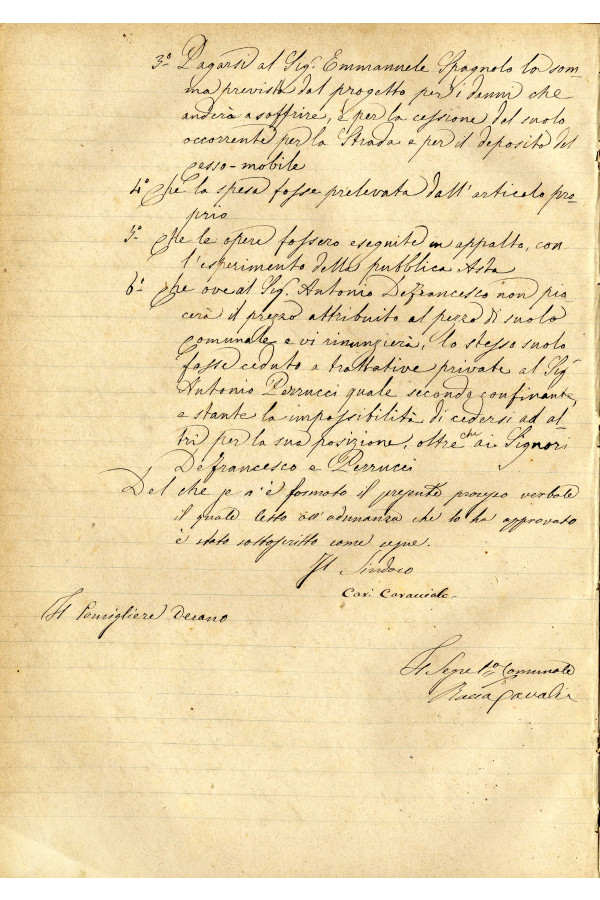 3.° Pagarsi al Sig.r Emmanuele Spagnolo la som-
ma prevista dal progetto per i danni che
anderà a soffrire, e per la cessione del suolo
occorrente per la Strada e per il deposito del
cesso-mobile
4.° Che la spesa fosse prelevata dall'articolo pro-
prio
5.° Che le opere fossero eseguite in appalto, con
l'esperimento della pubblica Asta
6.° Che ove al Sig.r Antonio Defrancesco non pia
cerà il prezzo attribuito al pezzo di suolo
comunale e vi rinunzierà, lo stesso suolo
fosse ceduto a trattative private al Sig.r
Antonio Perrucci quale secondo confinante,
e stante la impossibilità di cedersi ad al-
tri per la sua posizione, oltre che ai Signori
Defrancesco e Perrucci
Del che se n'è formato il presente processo verbale
il quale letto all'adunanza che lo ha approvato
è stato sottoscritto come segue.
Il Sindaco
Cav. Caracciolo
Il Consigliere Decano
Il Segret.io Comunale